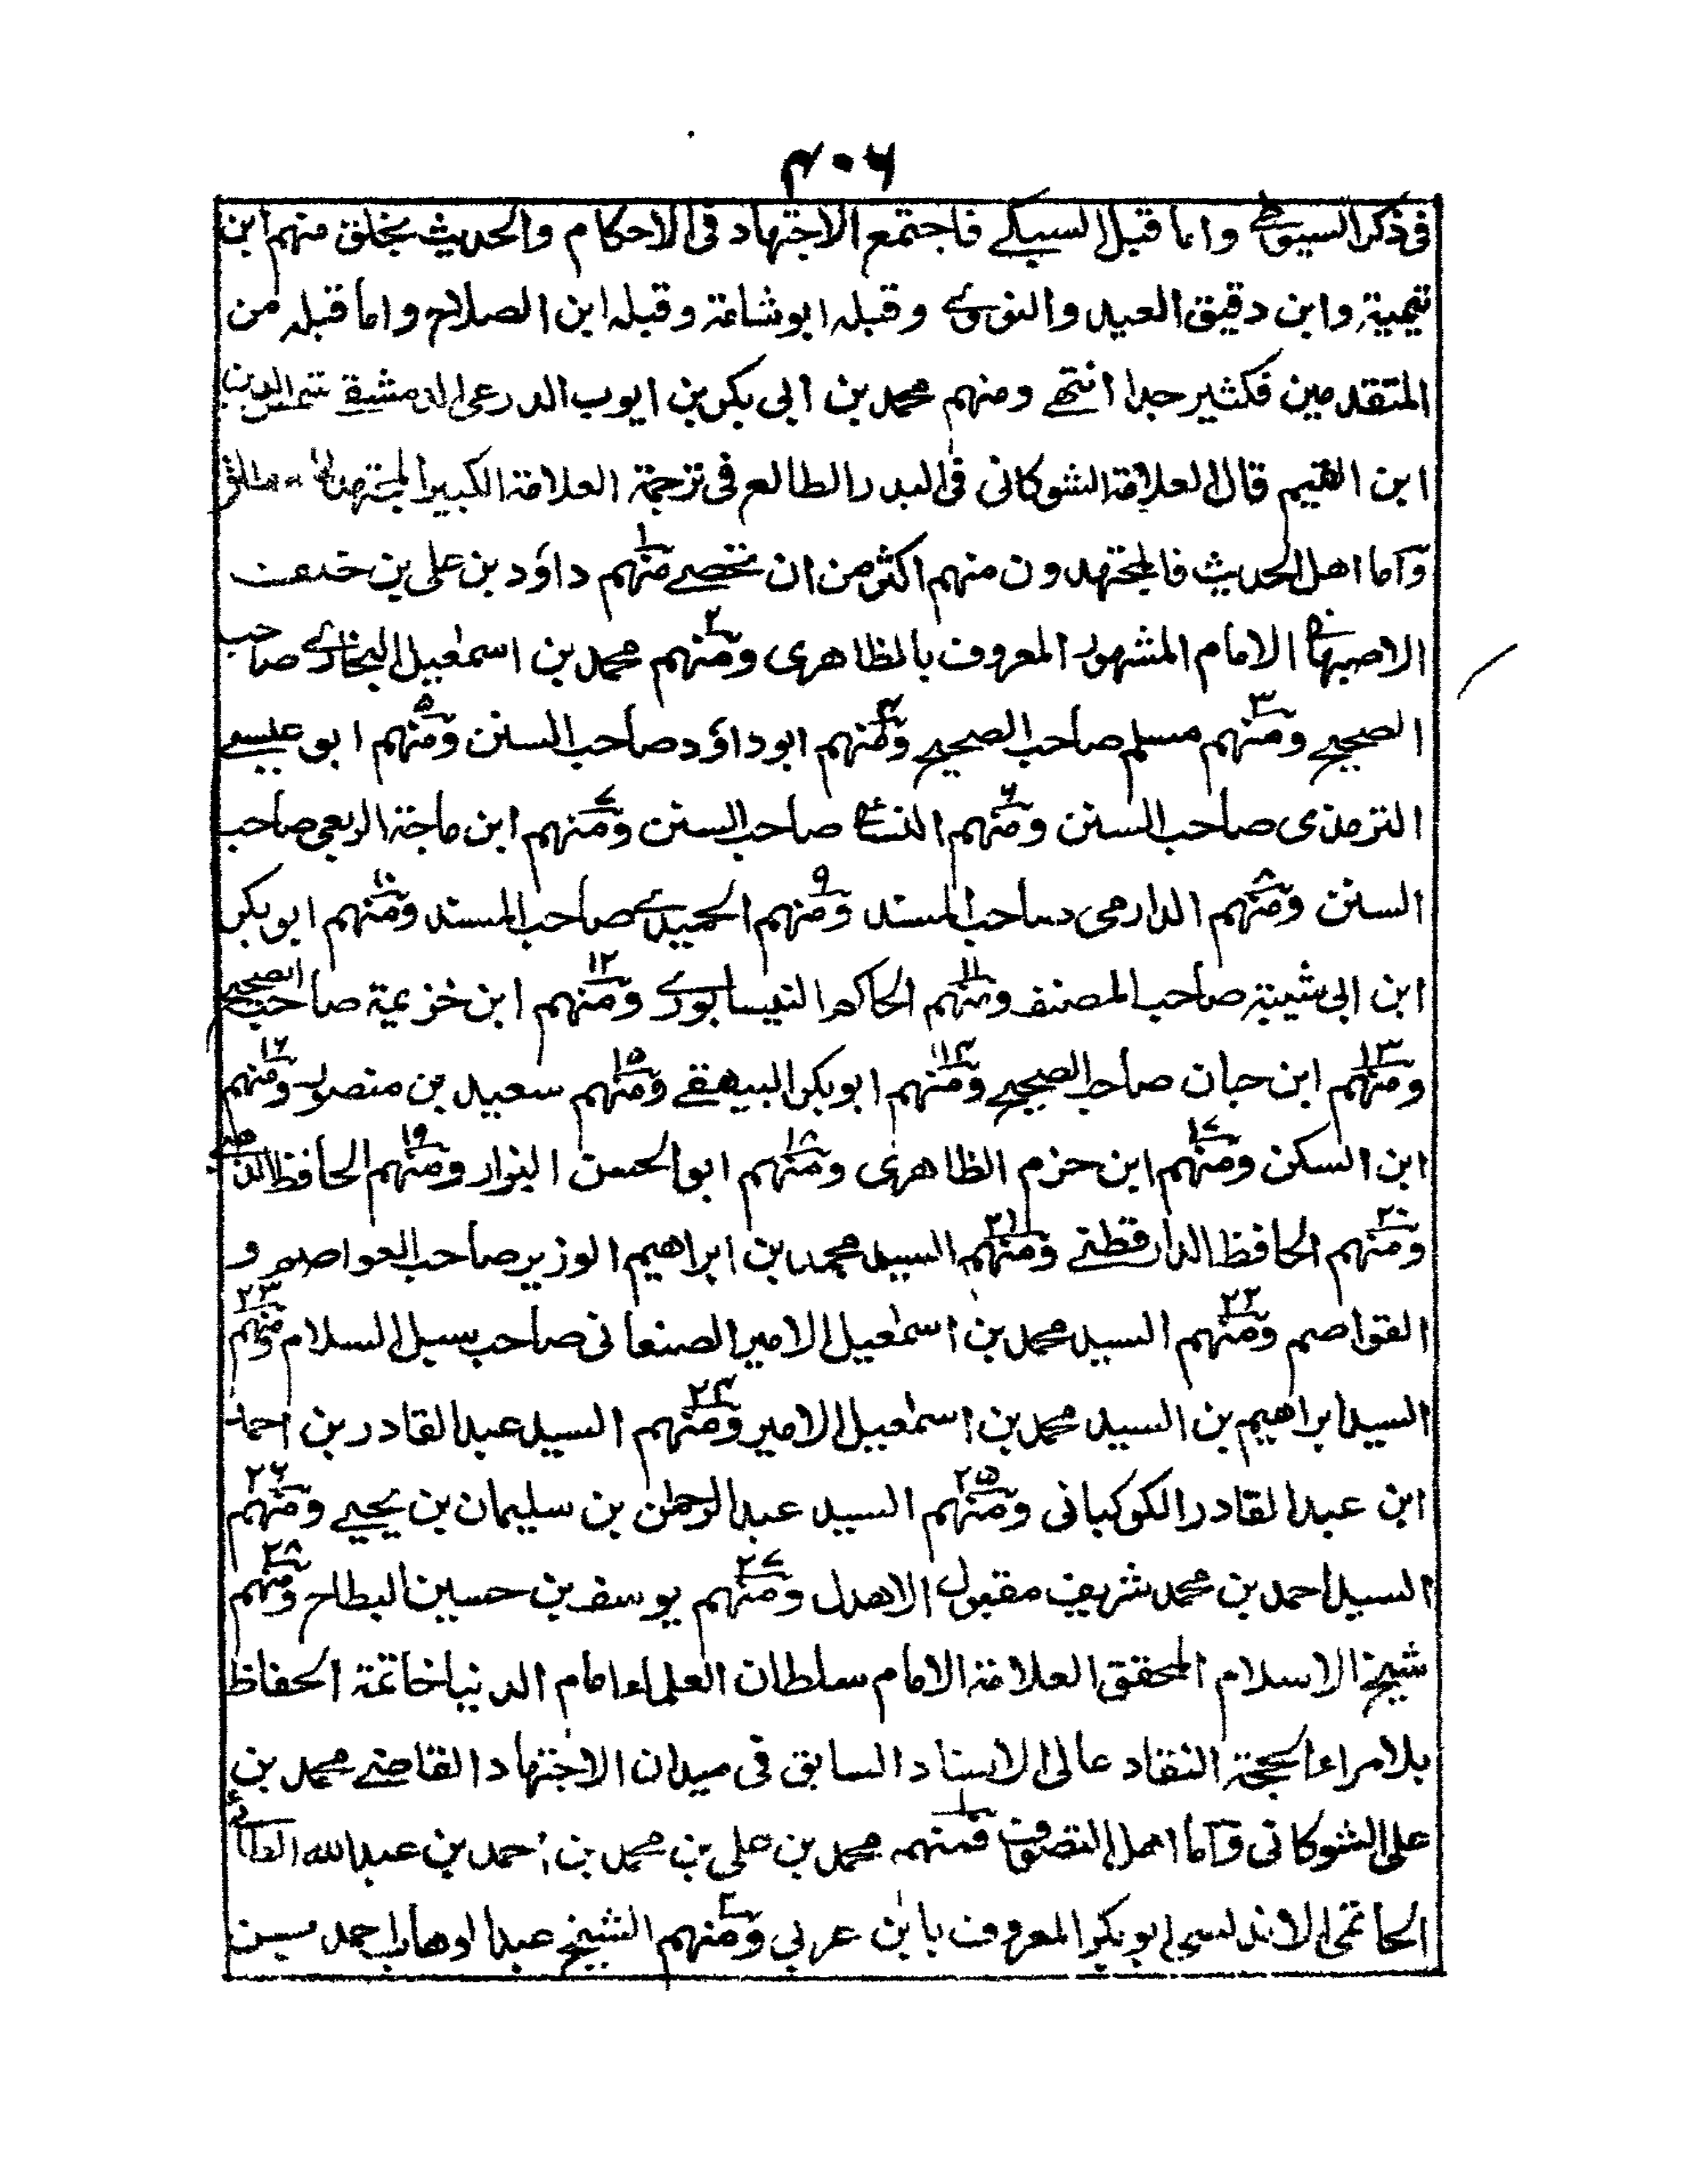 ۴۰۶
فی ذکر السیوطے واما قبل السبکے فاجتمع الاجتهاد فی الاحکام والحدیث بخلق منهم ابن
تیمیة وابن دقیق العید والنووی وقبله ابو شامة وقبله ابن الصلاح واما قبله من
المتقدمین فکثیر جدا انتهے ومنهم محمد بن ابی بکر بن ایوب الدرعی الدمشقے شمس الدین
ابن القیم قال العلامة الشوکانی فی البدر الطالع فی ترجمة العلامة الکبیر المجتهد المطلق
وآما اهل الحدیث فالمجتهدون منهم اکثر من ان تحصے منهم ۱ داؤد بن علی بن خلف
الاصبهانی الامام المشهور المعروف بالظاهری ومنهم ۲ محمد بن اسمٰعیل البخاری صاحب
الصحیح ومنهم ۳ مسلم صاحب الصحیح ومنهم ۴ ابو داؤد صاحب السنن ومنهم ۵ ابو عیسے
الترمذی صاحب السنن ومنهم ۶ النسائی صاحب السنن ومنهم ۷ ابن ماجة الربعی صاحب
السنن ومنهم ۸ الدارمی صاحب المسند ومنهم ۹ الحمیدے صاحب المسند ومنهم ۱۰ ابو بکر
ابن ابی شیبة صاحب المصنف ومنهم ۱۱ الحاکم النیسابورے ومنهم ۱۲ ابن خزیمة صاحب الصحیح
ومنهم ۱۳ ابن حبان صاحب الصحیح ومنهم ۱۴ ابو بکر البیهقے ومنهم ۱۵ سعید بن منصور ومنهم ۱۶
ابن السکن ومنهم ۱۷ ابن حزم الظاهری ومنهم ۱۸ ابو الحسن البزار ومنهم ۱۹ الحافظ
ومنهم ۲۰ الحافظ الدارقطنے ومنهم ۲۱ السید محمد بن ابراهیم الوزیر صاحب العواصم و
القواصم ومنهم ۲۲ السید محمد بن اسمٰعیل الامیر الصنعانی صاحب سبل السلام ومنهم ۲۳
السید ابراهیم بن السید محمد بن اسمٰعیل الامیر ومنهم ۲۴ السید عبد القادر بن احمد
ابن عبد القادر الکوکبانی ومنهم ۲۵ السید عبد الرحمٰن بن سلیمان بن یحیے ومنهم ۲۶
السید احمد بن محمد شریف مقبول الاهدل ومنهم ۲۷ یوسف بن حسین البطاح ومنهم ۲۸
شیخ الاسلام المحقق العلامة الامام سلطان العلماء امام الدنیا خاتمة الحفاظ
بلا مراء الحجة النقاد عالی الاسناد السابق فی میدان الاجتهاد القاضے محمد بن
علی الشوکانی وآما اهل التصوف فمنهم ۱ محمد بن علی بن محمد بن احمد بن عبد الله الطائی
الحاتمی الاندلسی ابو بکر المعروف بابن عربی ومنهم ۲ الشیخ عبد الوهاب احمد